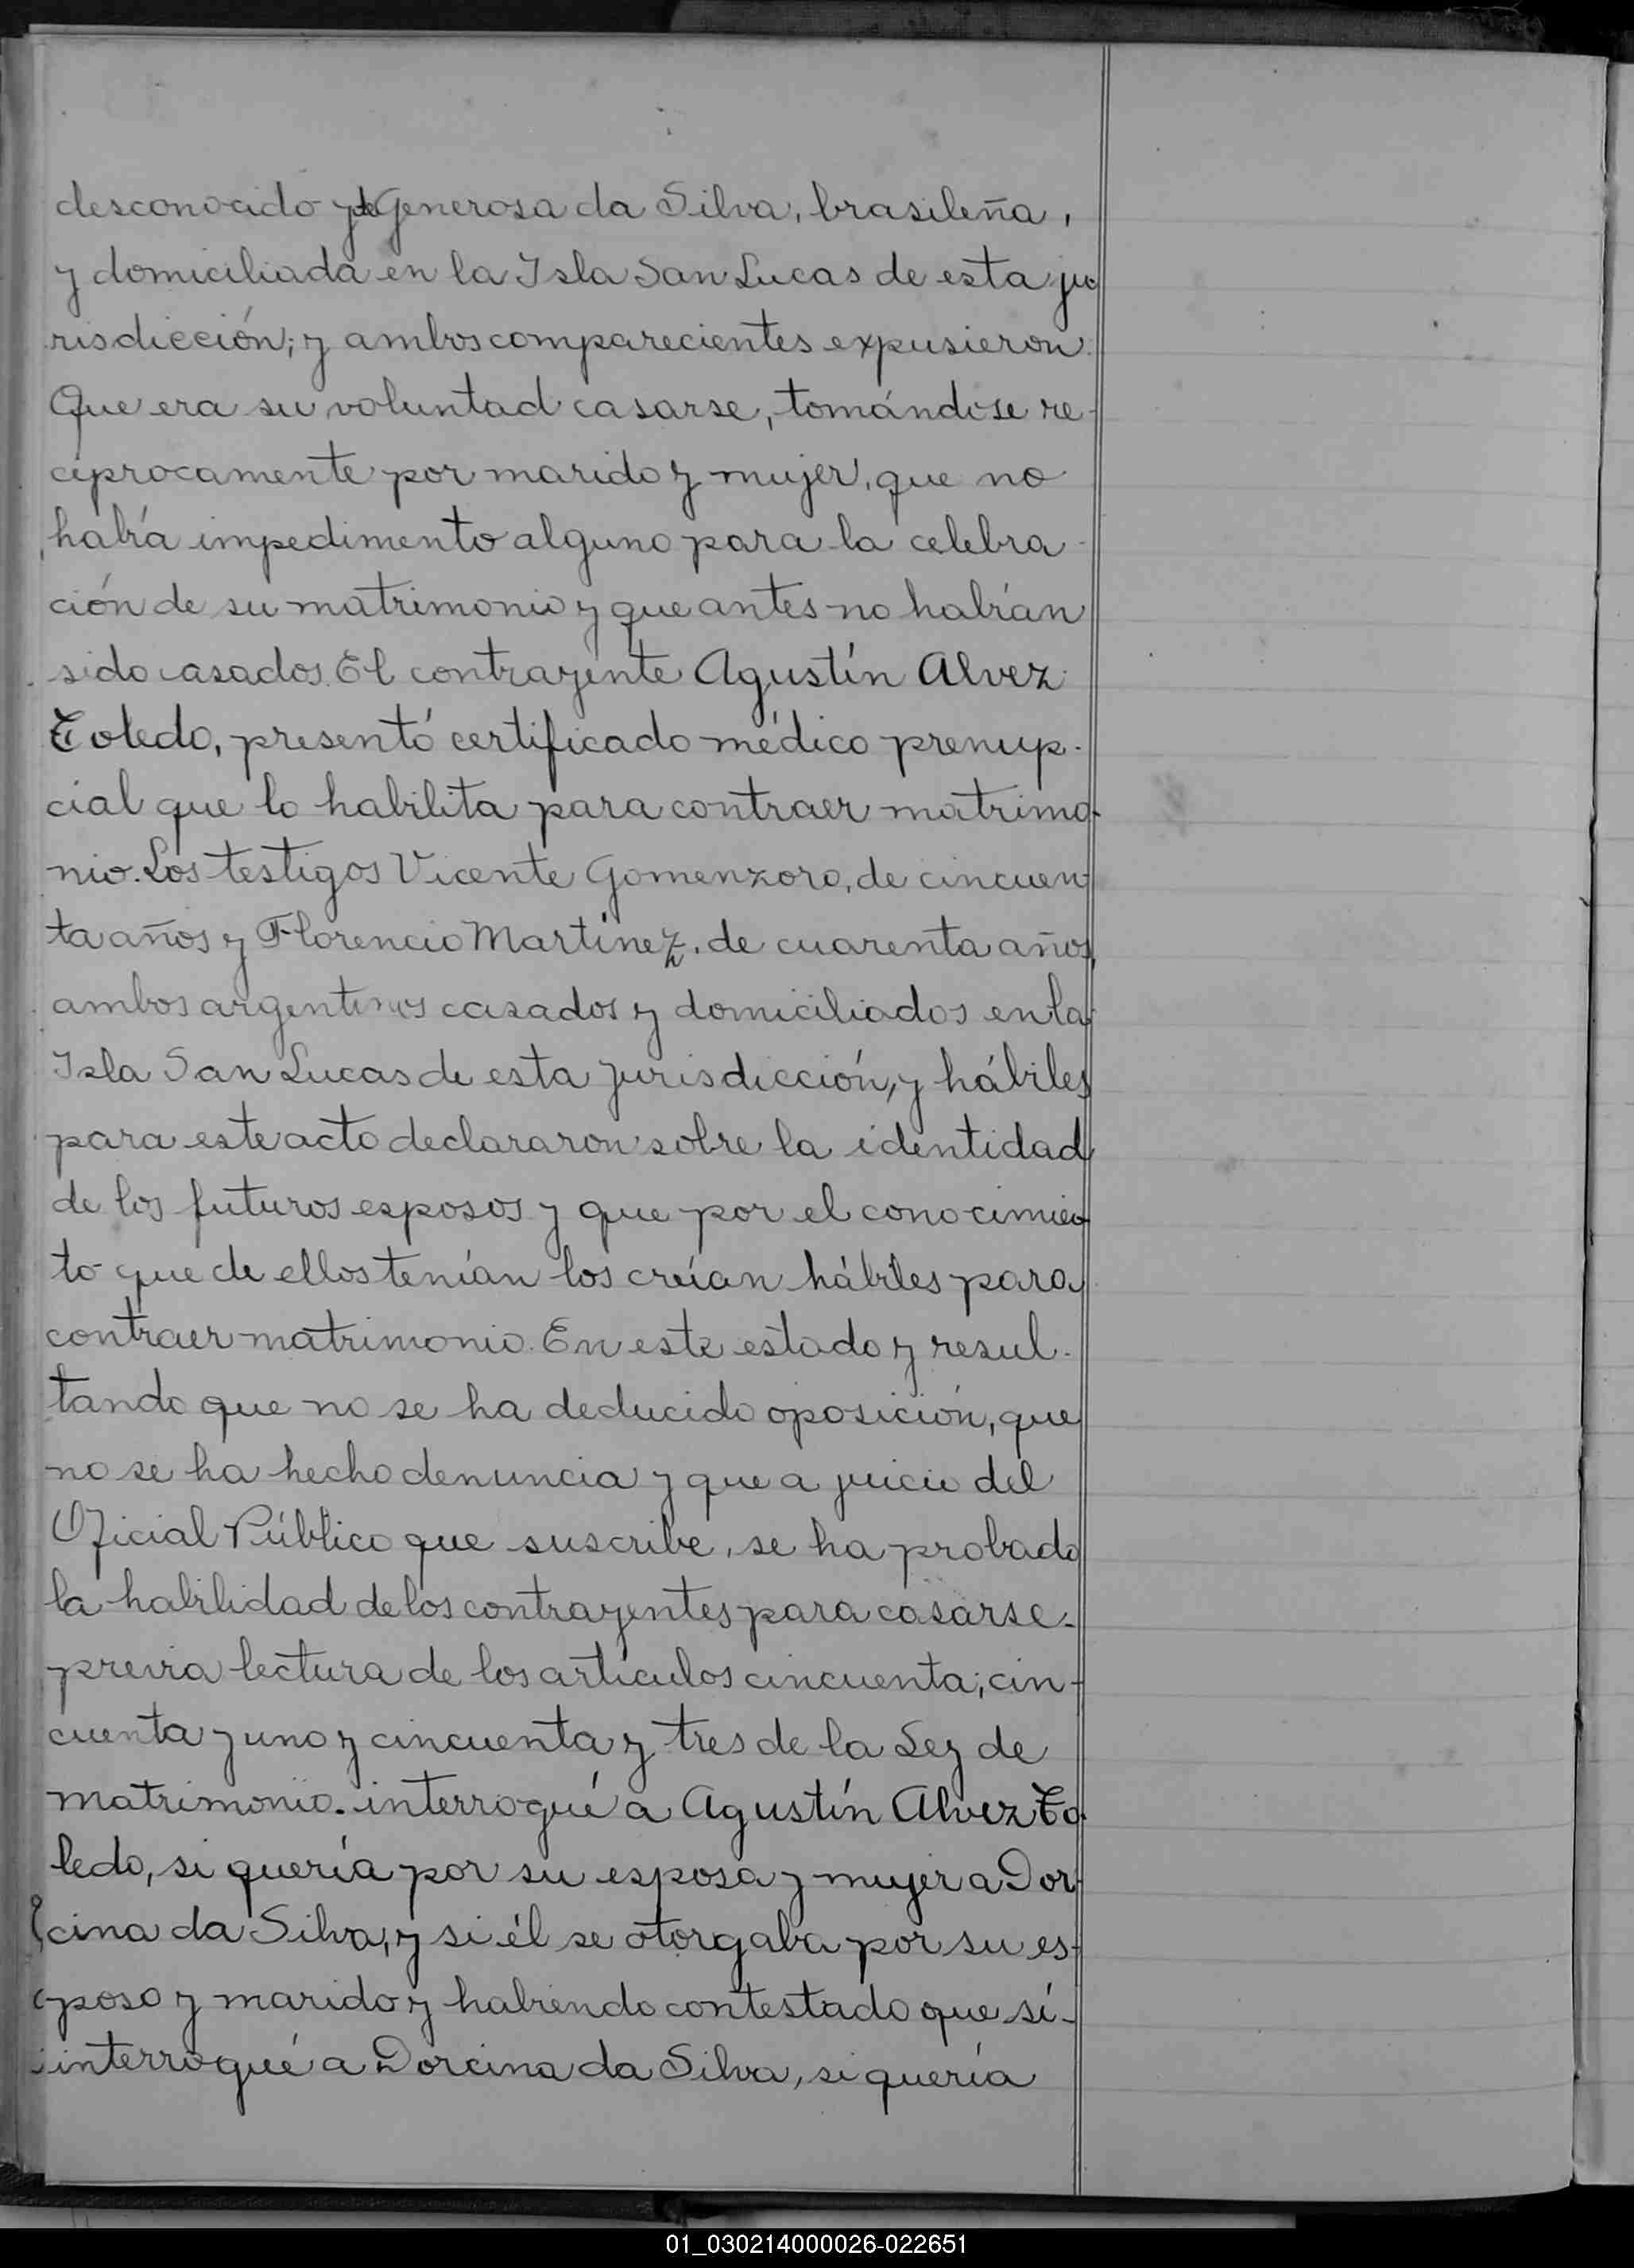 desconocido y de Generosa da Silva, brasileña,
y domiciliada en la Isla San Lucas de esta ju
risdicción; y ambos comparecientes expusieron:
Que era su voluntad casarse, tomándose re-
ciprocamente por marido y mujer, que no
había impedimento alguno para la celebra-
ción de su matrimonio y que antes no habían
sido casados. El contrayente Agustín Alvez
Toledo, presentó certificado médico prenup-
cial que lo habilita para contraer matrimo-
nio. Los testigos Vicente Gomenzoro, de cincuen
ta años y Florencio Martínez, de cuarenta años,
ambos argentinos casados y domiciliados en la
Isla San Lucas de esta jurisdicción, y hábiles
para este acto declararon sobre la identidad
de los futuros esposos y que por el conocimien
to que de ellos tenían los creían hábiles para
contraer matrimonio. En este estado y resul-
tando que no se ha deducido oposición, que
no se ha hecho denuncia y que a juicio del
Oficial Público que suscribe, se ha probado
la habilidad de los contrayentes para casarse-
previa lectura de los artículos cincuenta; cin-
cuenta y uno y cincuenta y tres de la Ley de
matrimonio. interrogué a Agustín Alvez To-
ledo, si quería por su esposa y mujer a Dor-
cina da Silva, y si él se otorgaba por su es-
poso y marido y habiendo contestado que sí-
interrogué a Dorcina da Silva, si quería
01_030214000026-022651